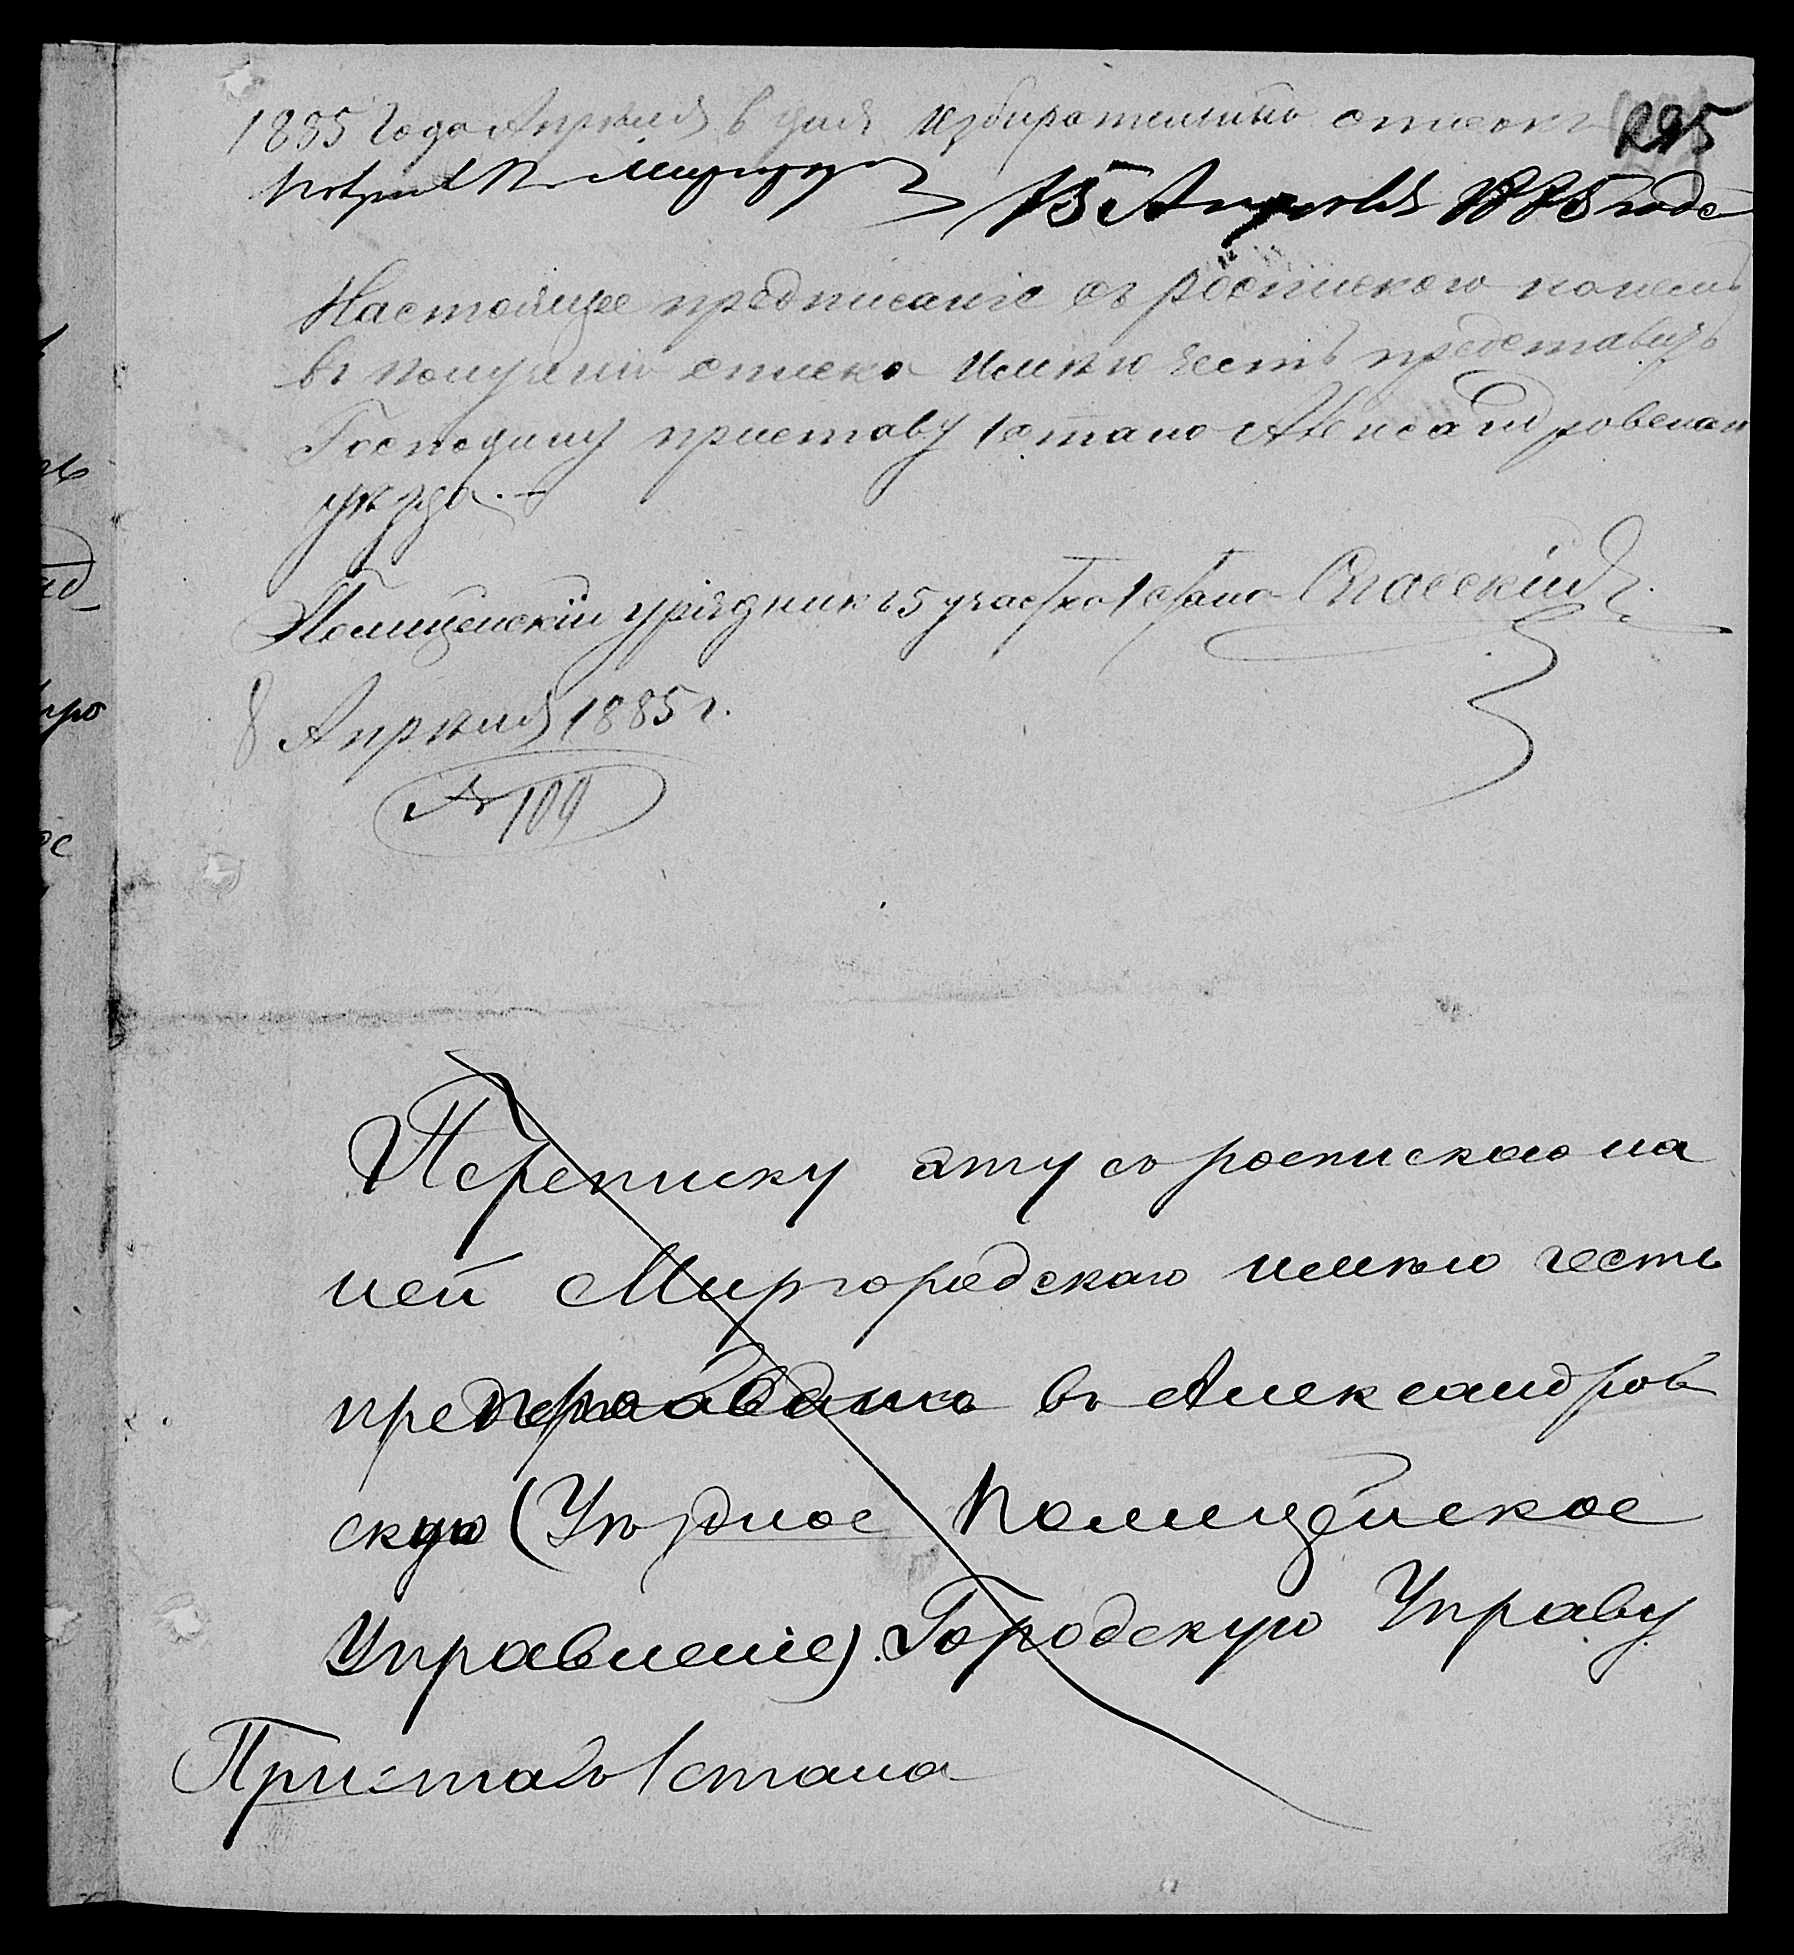 295
1885 года Апреля 8 дня избирательный список
получил Миргород
15 Апреля 1885 года
Настоящее предписание съ роспискою на немъ
въ получении списка имѣю честь представить
Господину приставу 1 стана Александровскаго
уѣзда. —
Полицейскій урядникъ 5 участка 1 стана Спасскій
8 Апрѣля 1885 г.
№ 109
Переписку эту съ роспискою на
ней Миргородскаго имѣю честь
въ Александров
скую (Уѣздное Полицейское
Управленіе). Городскую Управу
Приставъ 1 стана